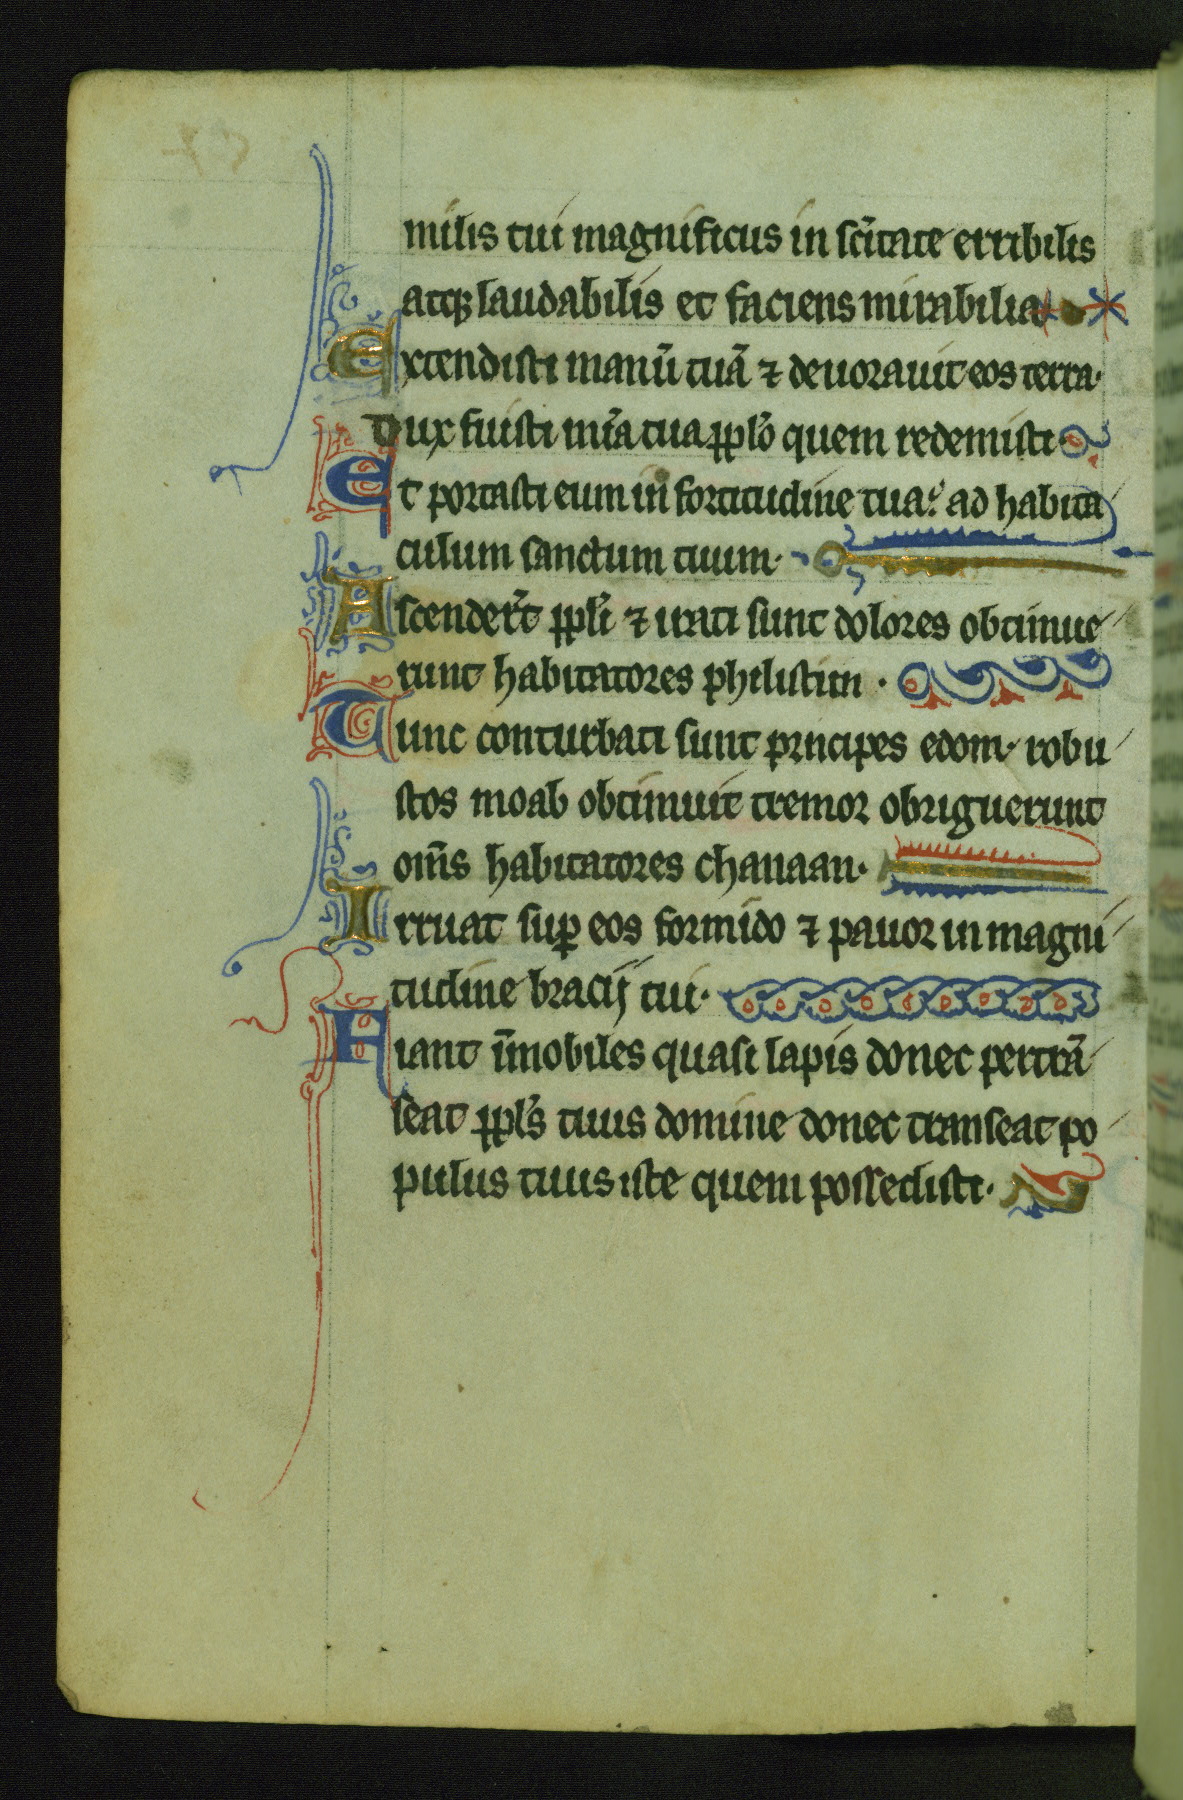 milis tui magnificus in sc̄itate erribilis
atq; laudabilis et faciens mirabilia
Extendisti manū tuā ⁊ deuorauit eos terra·
Dux fuisti mīa tua pplō quem redemisti
Et portasti eum in fortitudine tua: ad habita
culum sanctum tuum·
Ascenderūt ppl̄i ⁊ irati sunt dolores obtinue
runt habitatores philistiim ·
Tunc conturbati sunt principes edom· robu
stos moab obtinuit tremor obriguerunt
om̄s habitatores chanaan·
Irruat suꝑ eos formido ⁊ pauor in magni
tudine bracij tui·
Fiant īmobiles quasi lapis donec pertrā
seat ppl̄s tuus domine donec transeat po
pulus tuus iste quem possedisti·